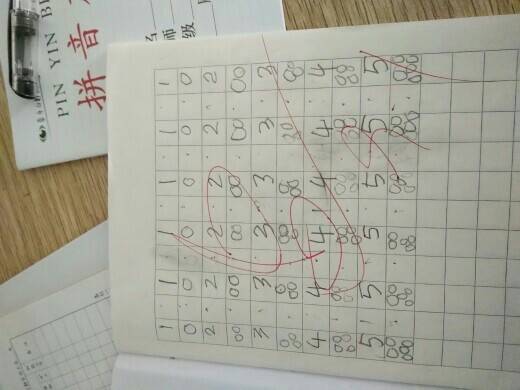 PIN YIN
拼音
名
师
级
1 0 2 00 3 000 4 0000 5 00000
1 0 2 00 3 000 4 0000 5 00000
1 0 2 00 3 000 4 0000 5 00000
1 0 2 00 3 000 4 0000 5 00000
1 0 2 00 3 000 4 0000 5 00000
1 0 2 00 3 000 4 0000 5 00000